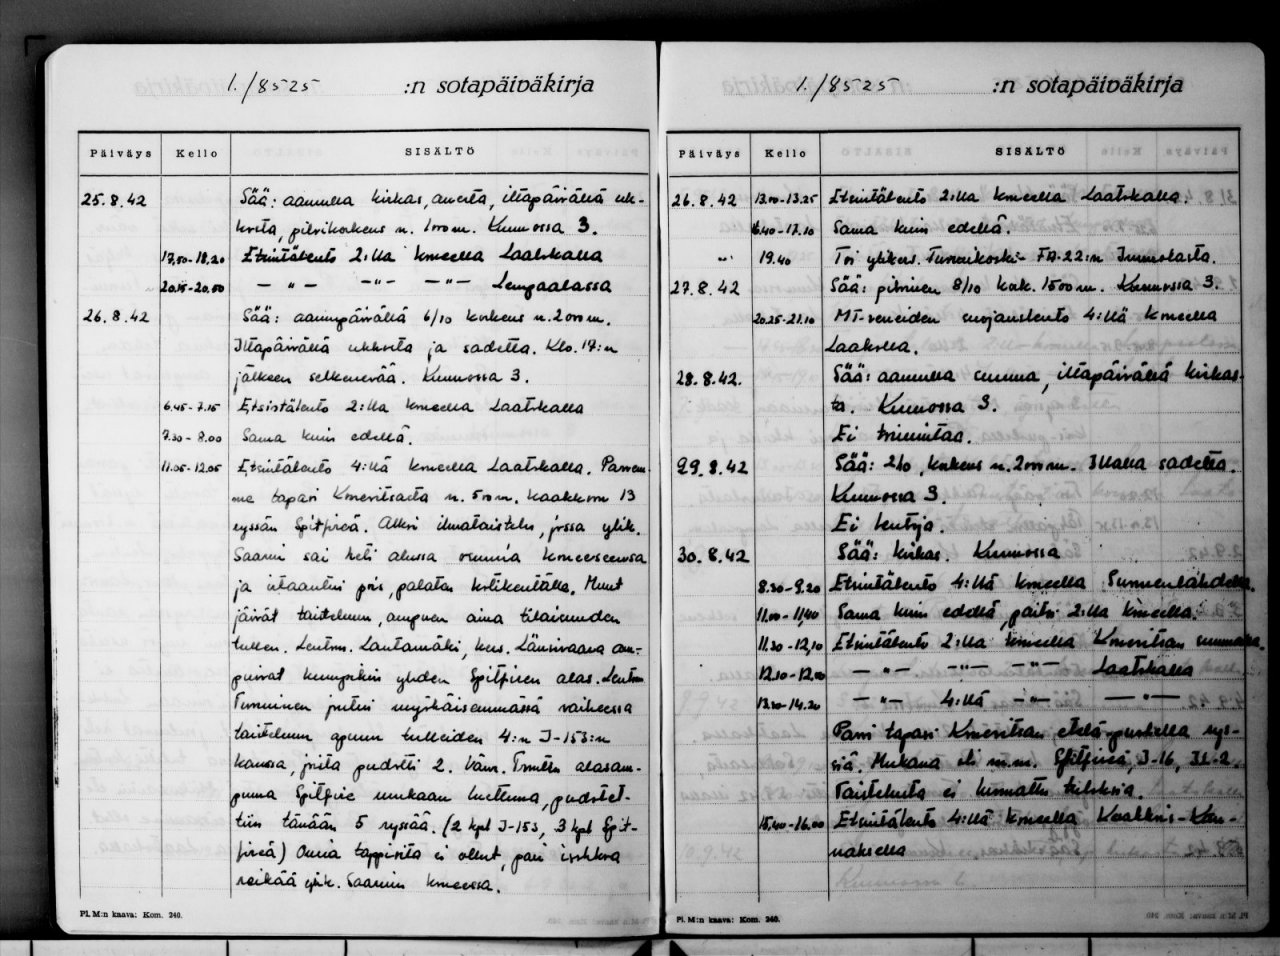 1./8525 :n sotapäiväkirja
Päiväys Kello SISÄLTÖ
25.8.42 Sää: aamulla kirkas, auerta, iltapäivällä uk-
koista, pilvikorkeus n. 1000 m. Kunnossa 3.
17,50-18.20 Etsintälento 2:lla koneella Laatokalla
20.15-20.50 — " — — " — — " — Lempaalassa
26.8.42 Sää: aamupäivällä 6/10 korkeus n. 2000 m.
Iltapäivällä ukkosta ja sadetta. Klo. 17:n
jälkeen selkenevää. Kunnossa 3.
6.45-7.15 Etsintälento 2:lla koneella Laatokalla
7.30-8.00 Sama kuin edellä.
11.05-12.05 Etsintälento 4:llä koneella Laatokalla. Parvem-
me tapasi Konevitsasta n. 5 km. kaakkoon 13
ryssän Spitfireä. Alkoi ilmataistelu, jossa ylik.
Saarni sai heti alussa osumia koneeseensa
ja irtaantui pois, palaten kotikentälle. Muut
jäivät taisteluun, ampuen aina tilaisuuden
tullen. Luutn. Lautamäki, kers. Länsivaara am-
puivat kumpikin yhden Spitfiren alas. Luutn.
Tervinen joutui myöhäisemmässä vaiheessa
taisteluun apuun tulleiden 4:n I-153:n
kanssa, joita pudotti 2. Vänr. Tomten alasam-
puma Spitfire mukaan luettuna, pudotet-
tiin tänään 5 ryssää. (2 kpl I-153, 3 kpl Spit-
fireä) Omia tappioita ei ollut, pari isohkoa
reikää ylik. Saarnin koneessa.
Pl. M:n kaava: Kom. 240.
1./8525 :n sotapäiväkirja
Päiväys Kello SISÄLTÖ
26.8.42 13.00-13.25 Etsintälento 2:lla koneella Laatokalla.
16.40-17.10 Sama kuin edellä.
— " — 19.40 Toi ylikers. Turvaikoski FA-22:n Immolasta.
27.8.42 Sää: pilvinen 8/10 kork. 1500 m. Kunnossa 3.
20.25-21.10 MT-veneiden suojauslento 4:llä koneella
Laatokalla.
28.8.42. Sää: aamulla sumua, iltapäivällä kirkas-
ta. Kunnossa 3.
Ei toimintaa.
29.8.42 Sää: 2/10, korkeus n. 2000 m. Illalla sadetta.
Kunnossa 3.
Ei lentoja.
30.8.42 Sää: kirkas. Kunnossa
8.30-9.20 Etsintälento 4:llä koneella Summenlahdella.
11.00-11,40 Sama kuin edellä, paitsi 2:lla koneella.
11.30-12,10 Etsintälento 2:lla koneella Konevitsan suunnalla.
12.10-12.00 — " — — " — — " — Laatokalla
13.30-14.20 — " — 4:llä — " — — " —
Parvi tapasi Konevitsan etelä-puolella rys-
siä. Mukana oli m.m. Spitfireä, I-16, IL-2.
Taistelusta ei huomattu tuloksia.
15.40-16.00 Etsintälento 4:llä koneella Kaakkois-Kan-
naksella
Pl. M:n kaava: Kom. 240.